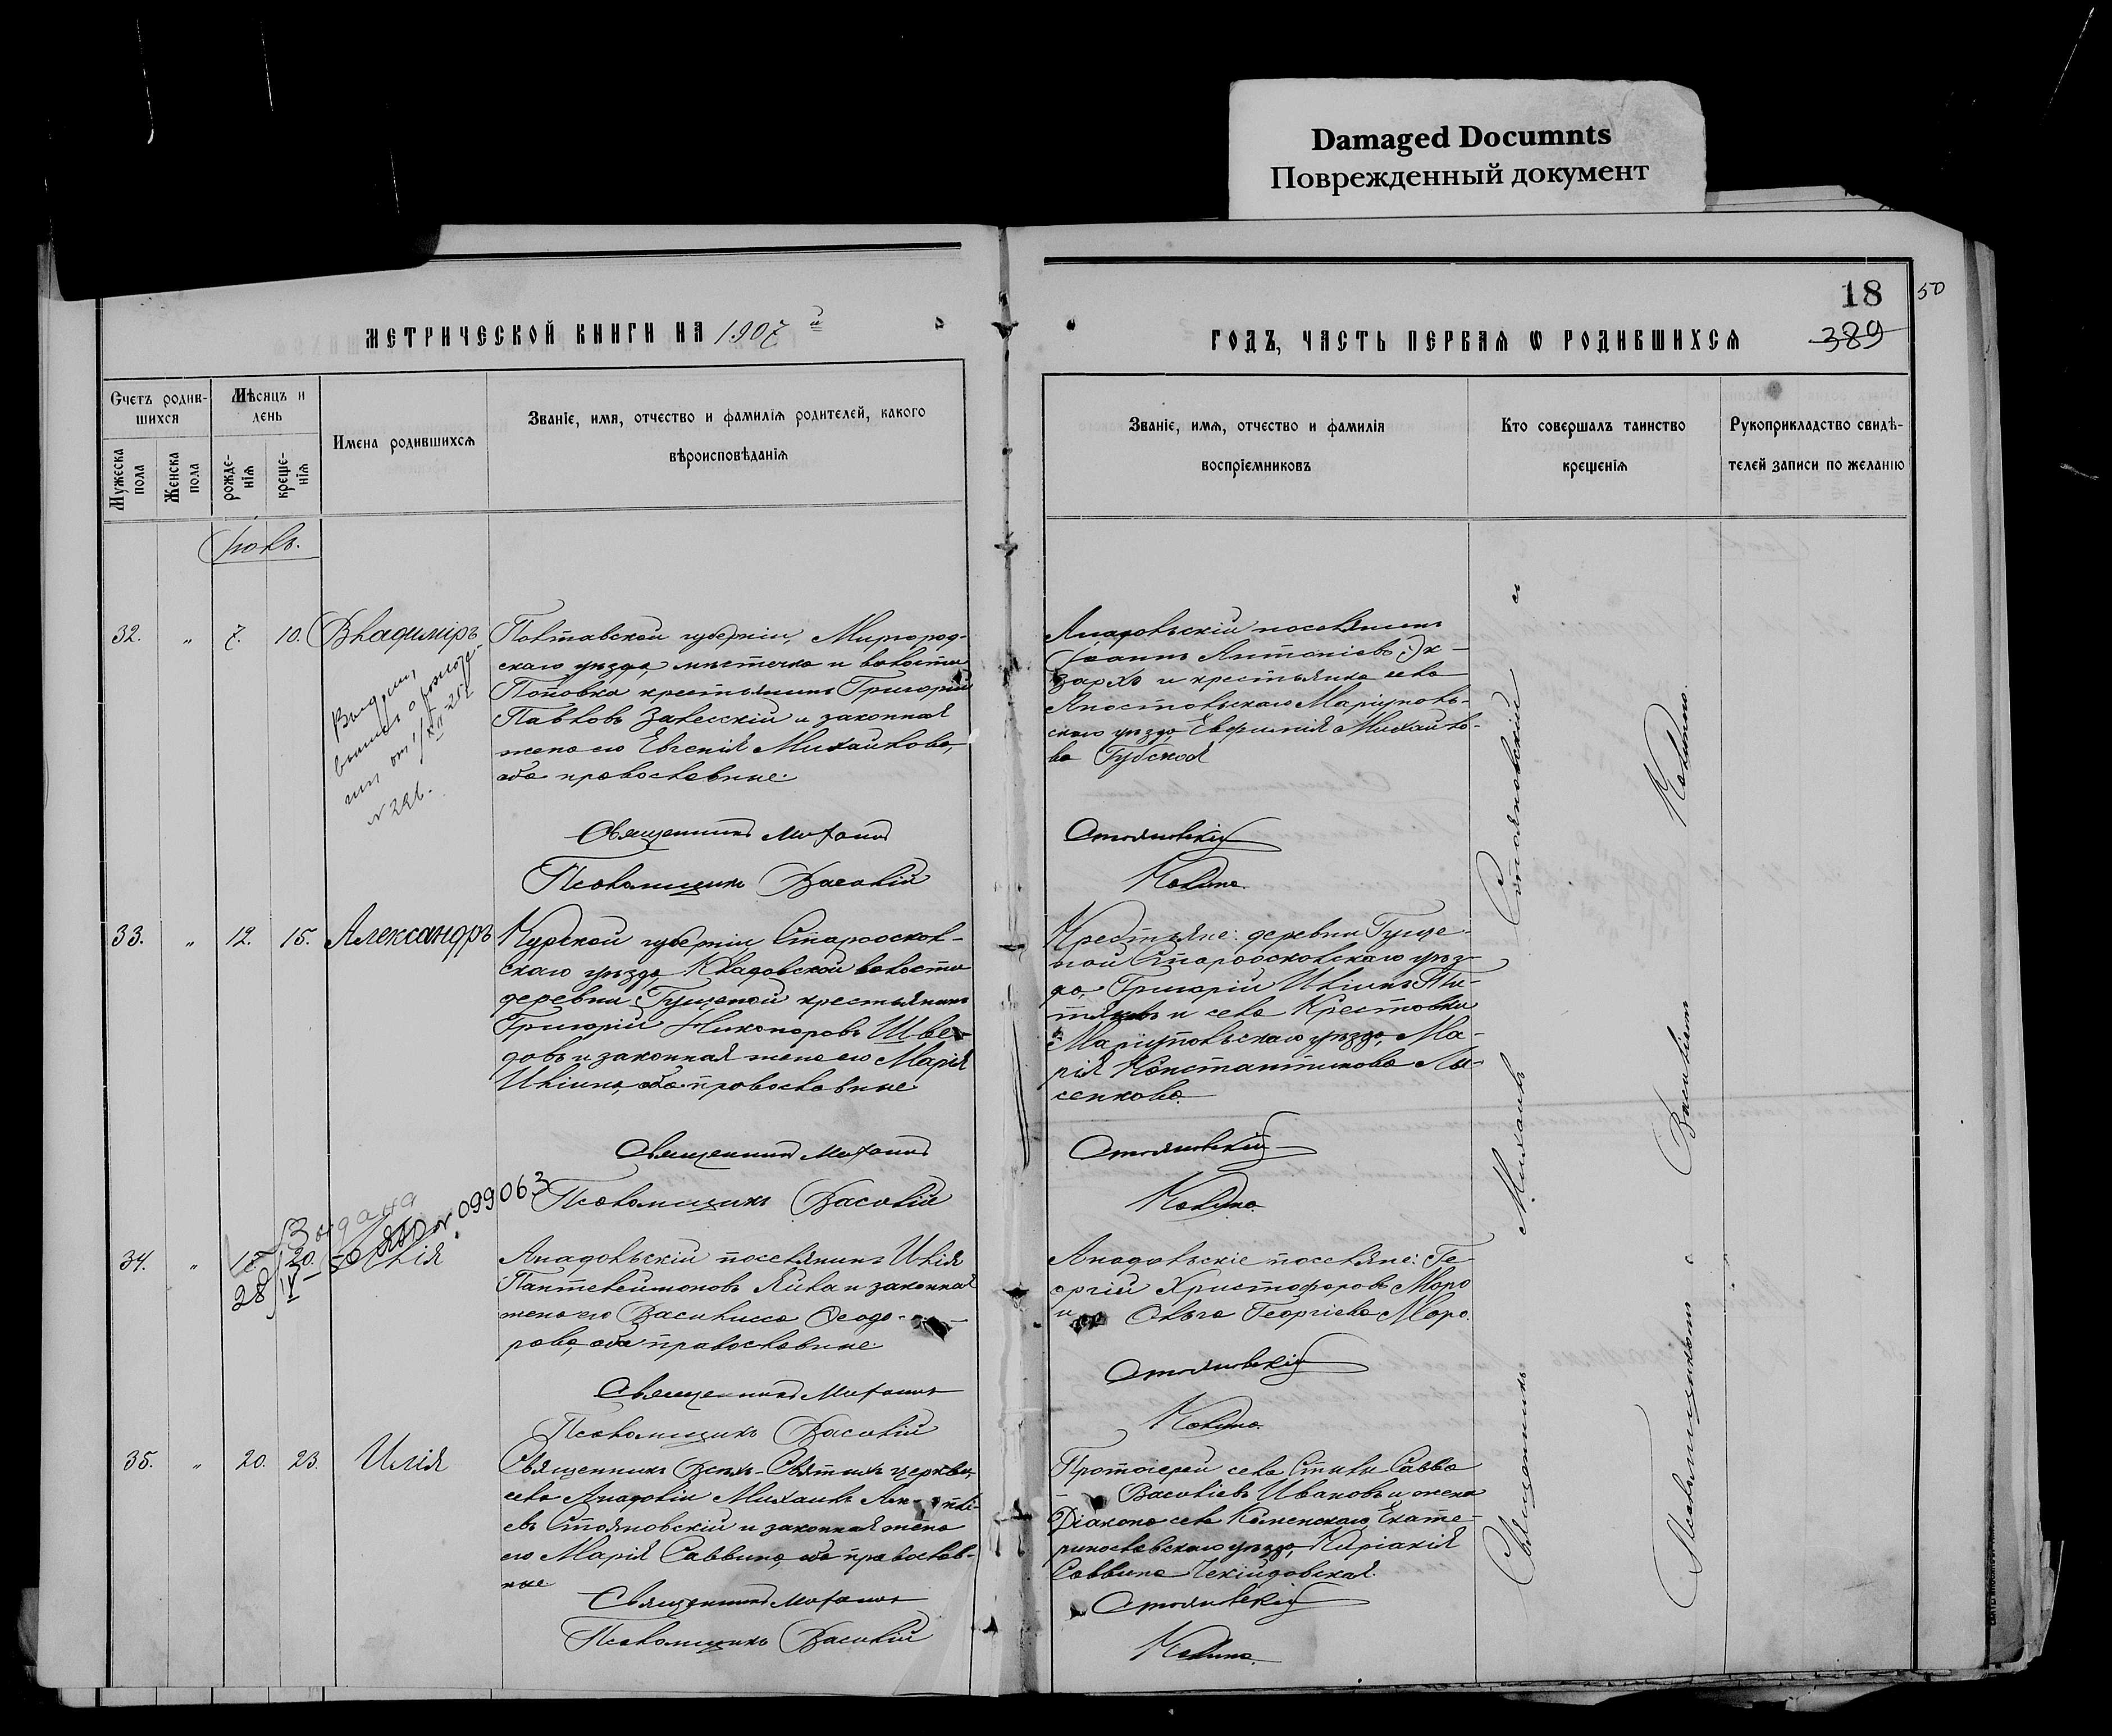 Damaged Documnts
Поврежденный документ
18
50
389
МЕТРИЧЕСКОЙ КНИГИ НА 1907 й
ГОДЪ, ЧАСТЬ ПЕРВАЯ Ѡ РОДИВШИХСЯ
Счетъ родив-
шихся
Мужеска пола
Женска пола
Мѣсяцъ и
день
рожде-
нія
креще-
нія
Имена родившихся
Званіе, имя, отчество и фамилія родителей, какого
вѣроисповѣданія
Званіе, имя, отчество и фамилія
воспріемниковъ
Кто совершалъ таинство
крещенія
Рукоприкладство свидѣ-
телей записи по желанію
Іюль.
32. " 7. 10. Владиміръ
Полтавской губерніи, Миргород-
скаго уѣзда, мѣстечка и волости
Поповка крестьянинъ Григорій
Павловъ Залесскій и законная
жена его Евгенія Михайлова,
оба православные.
Священникъ Михаилъ
Псаломщикъ Василій
№ 296.
Анадольскій поселянинъ
Іоаннъ Антоніевъ Эк-
зархъ и крестьянка села
Апостольскаго Маріуполь-
скаго уѣзда, Евфимія Михайло-
ва Губская
Стояновскій
Калина.
33. " 12. 15. Александръ
Курской губерніи, Старооскол-
скаго уѣзда Кладовской волости
деревни Гущеной крестьянинъ
Григорій Никоноровъ Шве-
довъ и законная жена его Марія
Иліина, оба православные
Священникъ Михаилъ
Псаломщикъ Василій
Крестьяне: деревни Гуще-
ной Старооскольскаго уѣз-
да, Григорій Иліинъ
и села Крестовки
Маріупольскаго уѣзда, Ма-
рія Константинова Лы-
сенкова.
Стояновскій
Калина.
34. " 15. 20. Илія
Выдана
№ 099063
28/IV – 50
Анадольскій поселянинъ Илія
Пантелеимоновъ Яйла и законная
жена его Василисса Ѳеодо-
рова, оба православные.
Священникъ Михаилъ
Псаломщикъ Василій
Анадольскіе поселяне: Ге-
оргій Христофоровъ Моро
и Ольга Георгіева Моро.
Стояновскій
Калина.
35. " 20. 23. Илія
Священникъ Всѣхъ-Святской церкви,
села Анадоліи Михаилъ
евъ Стояновскій и законная жена
его Марія Саввина, оба православ-
ные
Священникъ Михаилъ
Псаломщикъ Василій
Протоіерей села Стылы Савва
Василіевъ Ивановъ и жена
Діакона села Каменскаго, Екате-
ринославскаго уѣзда, Киріакія
Саввина
Стояновскій
Калина.
Священникъ Михаилъ Стояновскій съ
Псаломщикомъ Василіемъ Калиною.